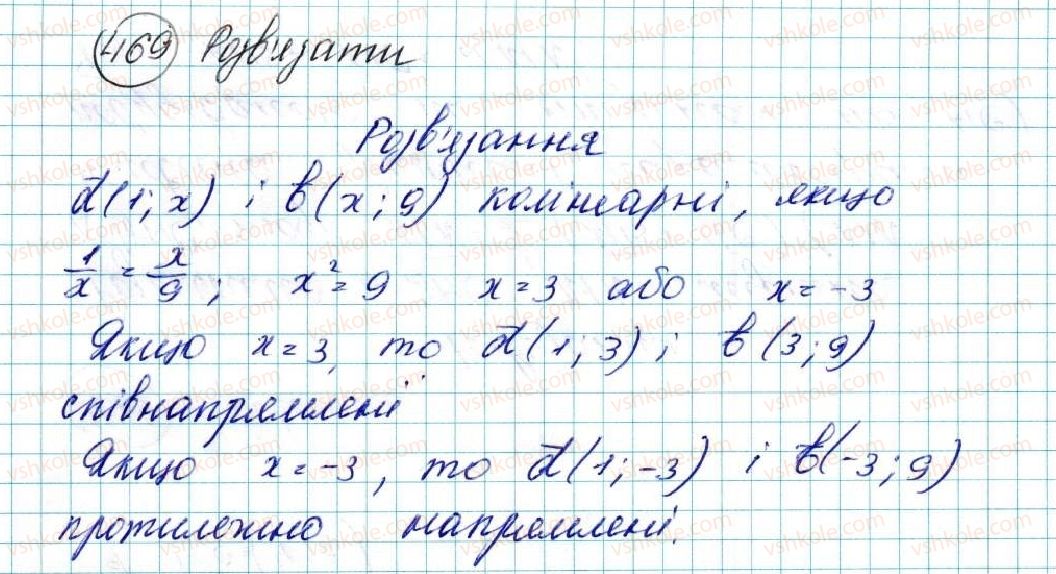 469 Розв'язати
Розв'язання
a⃗(1; x) і b⃗(x; 9) колінеарні, якщо
1/x = x/9; x² = 9 x = 3 або x = -3
Якщо x = 3, то a⃗(1; 3) і b⃗(3; 9)
співнапрямлені
Якщо x = -3, то a⃗(1; -3) і b⃗(-3; 9)
протилежно напрямлені.